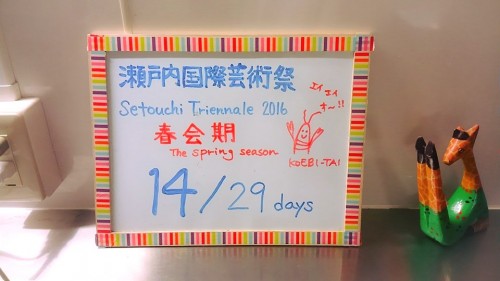 瀬戸内国際芸術祭
Setouchi Triennale 2016
春会期
The spring season
エイエイ
オ〜!!
KOEBI-TAI
14/29 days